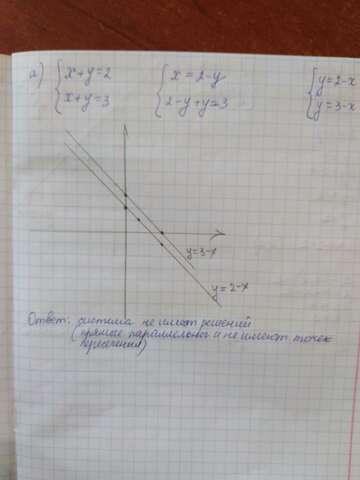 а) { x+y=2 { x = 2-y { y=2-x
{ x+y=3 { 2-y+y=3 { y=3-x
y=3-x
y=2-x
Ответ: система не имеет решений
(прямые параллельны и не имеют точек
пересечения)